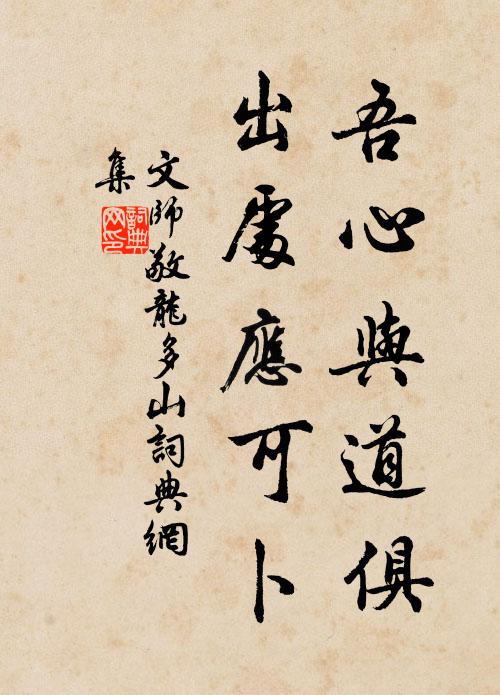 吾心與道俱
出處應可卜
文師敬龍多山詞典網
集
詞典網印